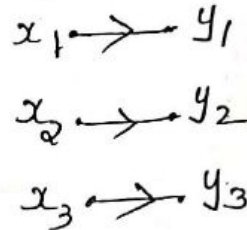 x₁ → y₁
x₂ → y₂
x₃ → y₃